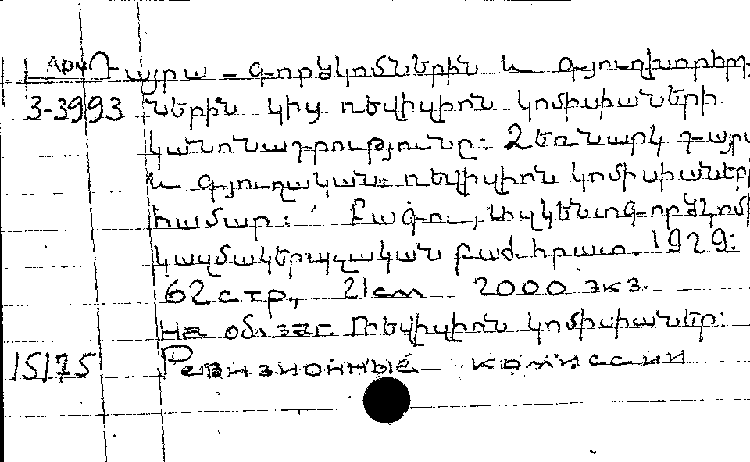 Арм Դայրա-գործկոմներին և գյուղխորհրդ-
3-3993 ներին կից ռեվիզիոն կոմիսիաների
կանոնադրությունը: Ձեռնարկ դայրա
և գյուղական ռեվիզիոն կոմիսիաների
համար: Բագու, կենտգործկոմի
կազմակերպչական բաժ. հրատ. 1929:
62 стр, 21 см 2000 экз.
На облзаг Ռեվիզիոն կոմիսիաներ:
15175 Ревизионные комиссии